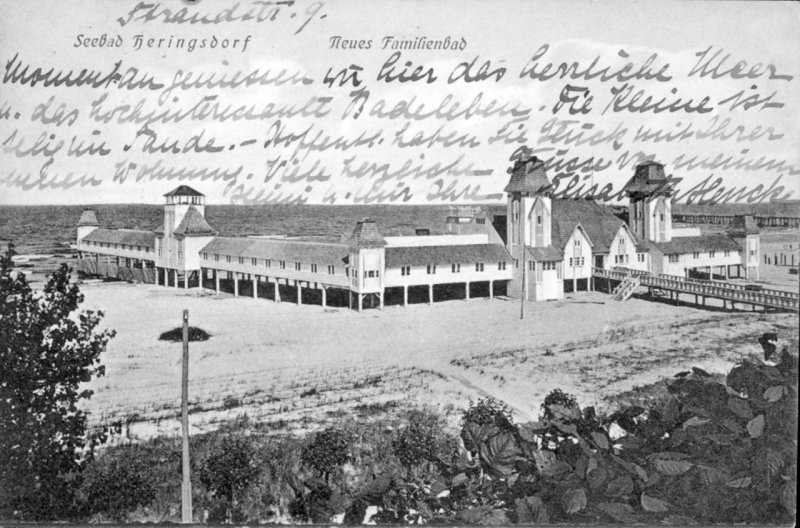 Strandstr. 9.
Seebad Heringsdorf Neues Familienbad
Momentan geniessen wir hier das herrliche Meer
u. das hochinteressante Badeleben. Die Kleine ist
selig im Sande. – Hoffentl. haben Sie Glück mit Ihrer
neuen Wohnung. Viele herzliche Grüsse von meinem
u. mir Ihre Elisabeth